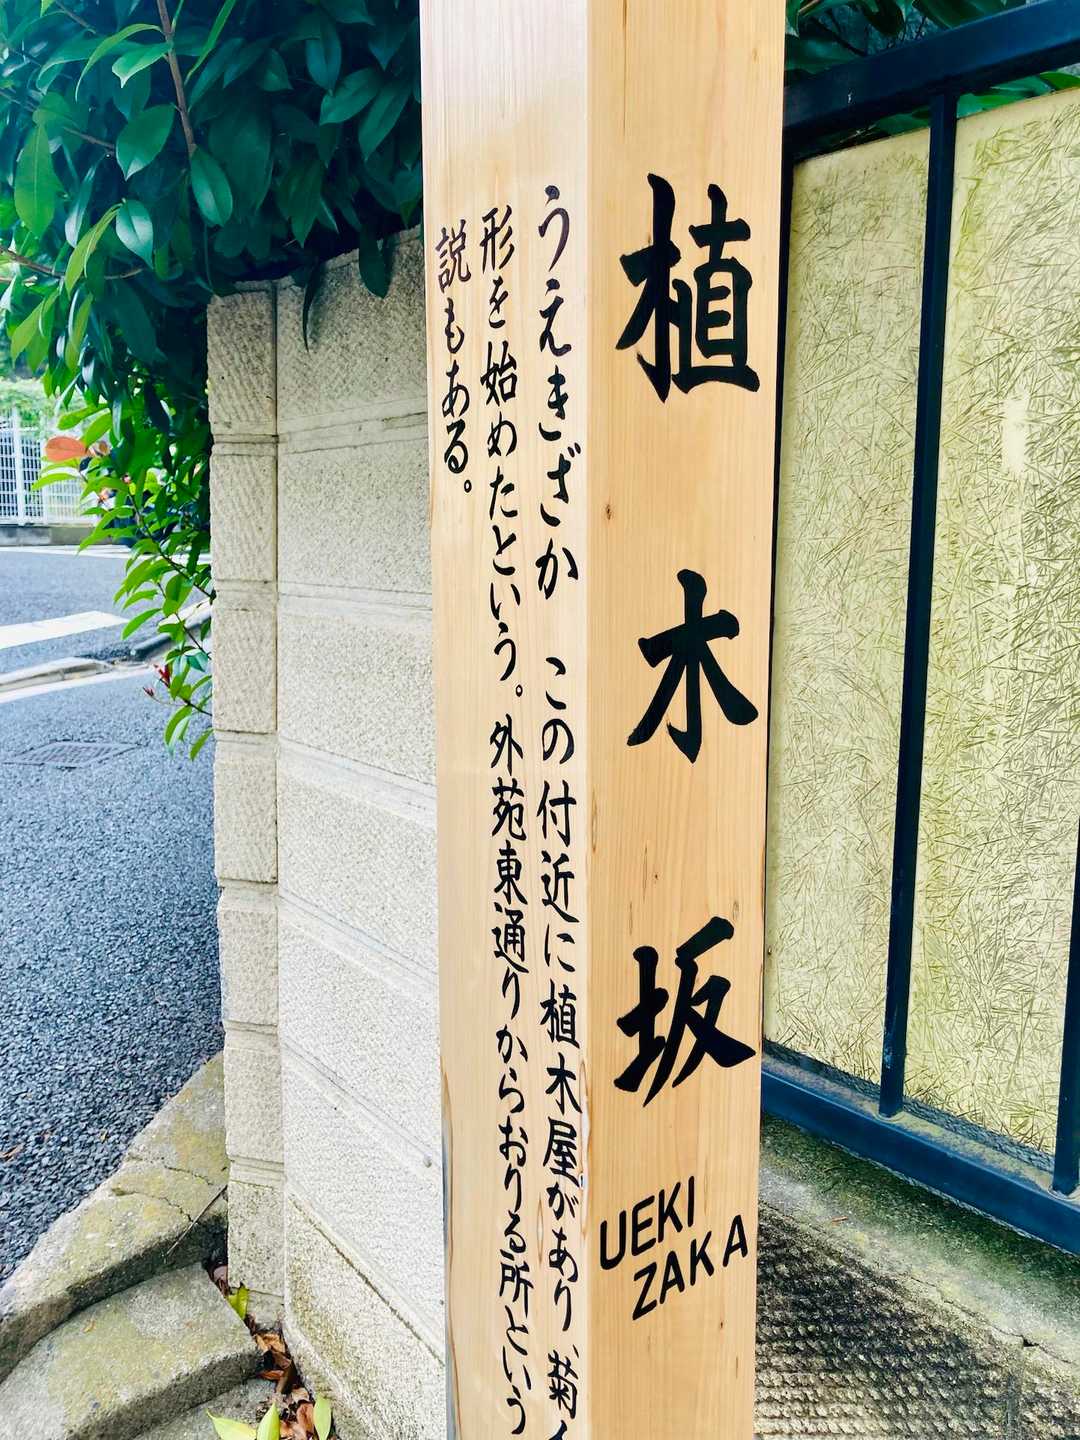 植木坂
UEKI
ZAKA
うえきざか この付近に植木屋があり、菊
形を始めたという。外苑東通りからおりる所という
説もある。